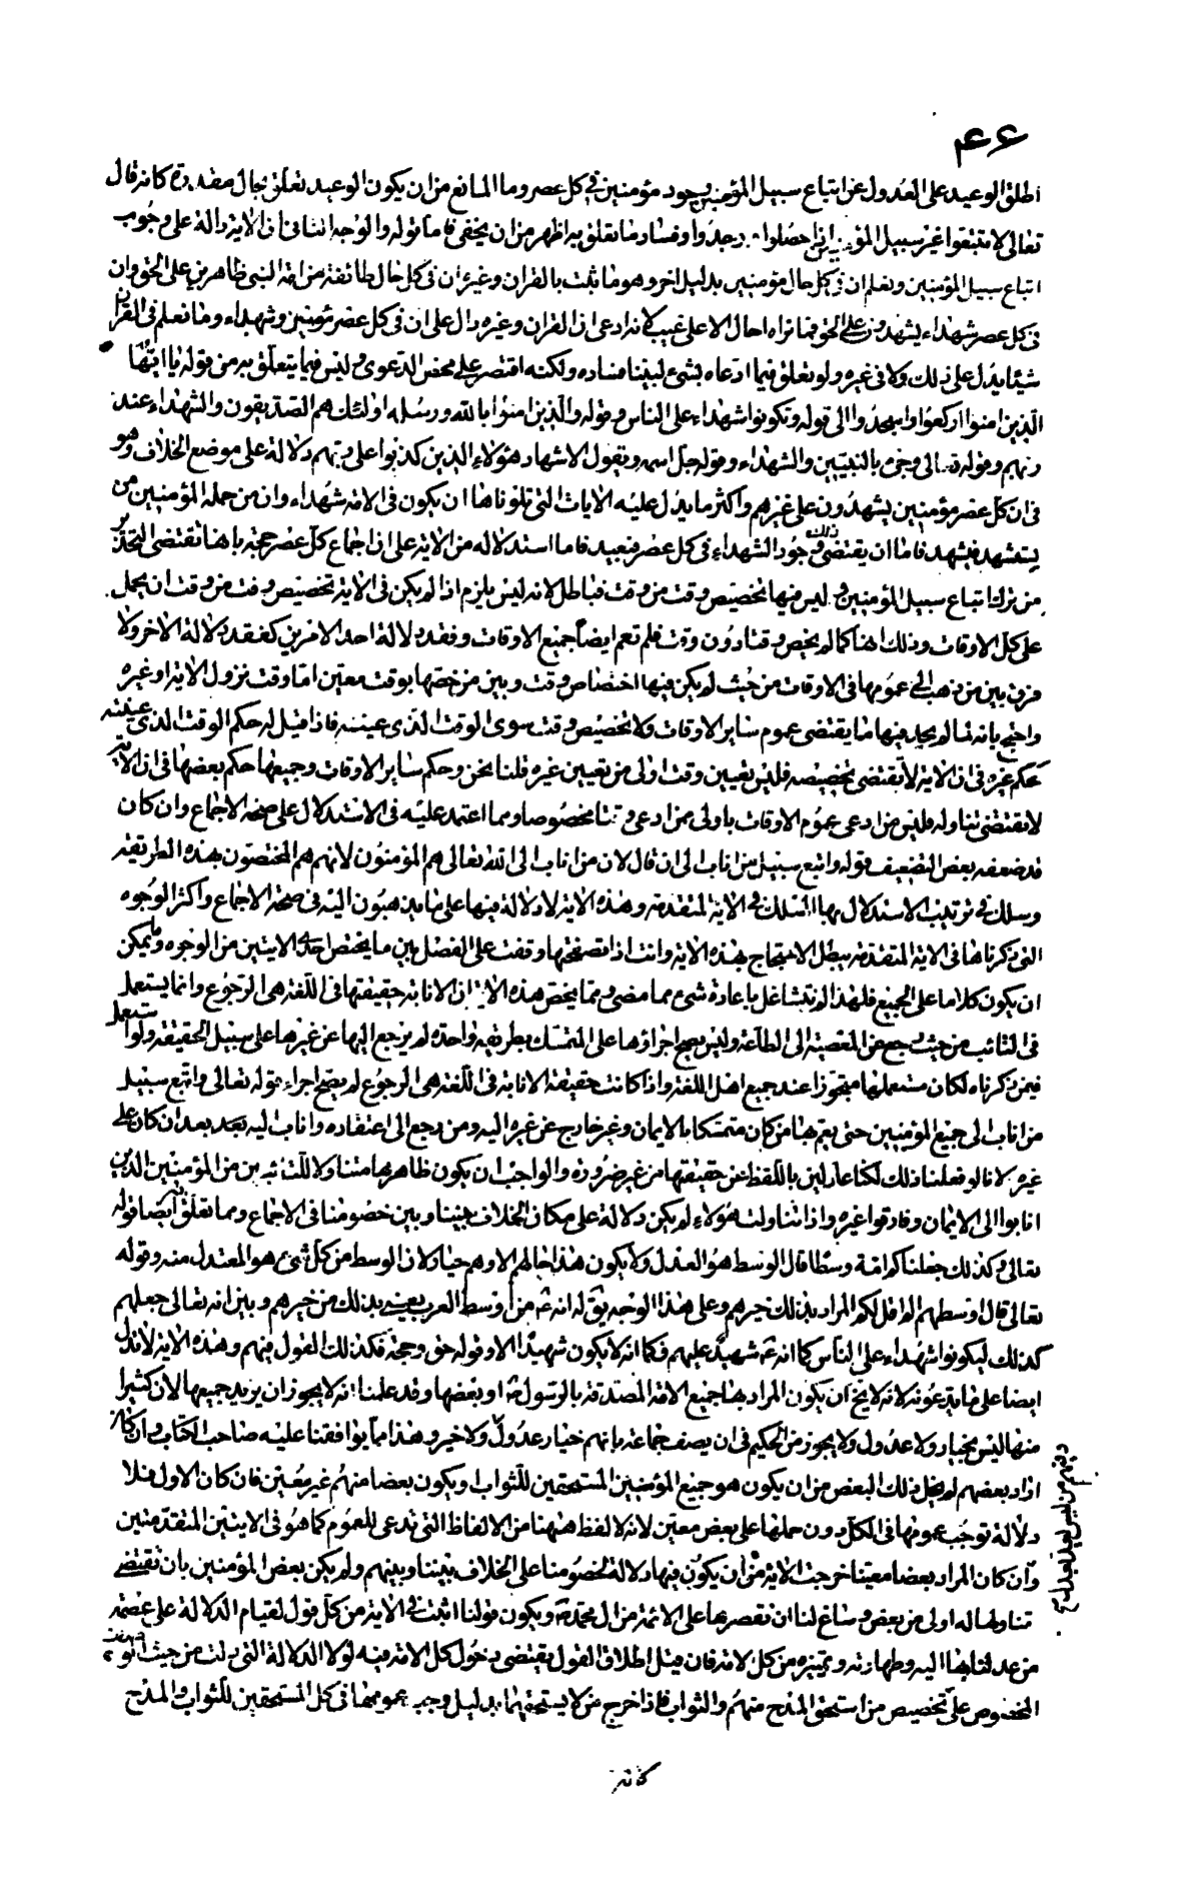 ٤٦
اطلق الوعيد على العدول عن اتباع سبيل المؤمنين وجود مؤمنين في كل عصر وما المانع من ان يكون الوعيد تعلق بحال مقدرة كانه قال
تعالى لا تتبعوا غير سبيل المؤمنين اذا حصلوا ووجدوا وفساد ما تعلق به اظهر من ان يخفى فاما قوله والوجه الثاني ان الاية دالة على وجوب
اتباع سبيل المؤمنين ونعلم ان في كل حال مؤمنين بدليل اخر وهو ما ثبت بالقران وغيره ان في كل حال طائفة من امة النبي ظاهرين على الحق وان
في كل عصر شهداء يشهدون على الحق فما نراه احال الا على غيب لانه ادعى ان القران وغيره دال على ان في كل عصر مؤمنين وشهداء وما نعلم في القران
شيئا يدل على ذلك ولا في غيره ولو تعلق فيما ادعاه بشيء لبينا فساده ولكنه اقتصر على محض الدعوى وليس فيما يتعلق به من قوله يا ايها
الذين امنوا اركعوا واسجدوا الى قوله وتكونوا شهداء على الناس وقوله والذين امنوا بالله ورسله اولئك هم الصديقون والشهداء عند
ربهم وقوله تعالى وجيء بالنبيين والشهداء وقوله جل اسمه ويقول الاشهاد هؤلاء الذين كذبوا على ربهم دلالة على موضع الخلاف وهو
في ان كل عصر مؤمنين يشهدون على غيرهم واكثر ما يدل عليه الايات التي تلوناها ان يكون في الامة شهداء وان من جملة المؤمنين من
يستشهد فيشهد فاما ان يقتضي ذلك وجود الشهداء في كل عصر فبعيد فاما استدلاله من الاية على ان اجماع كل عصر حجة بانها تقتضي التحذير
من ترك اتباع سبيل المؤمنين وليس فيها تخصيص وقت من وقت فباطل لانه ليس يلزم اذا لم يكن في الاية تخصيص وقت من وقت ان يحمل
على كل الاوقات وذلك انها كما لم يخص وقتا دون وقت فلم تعم ايضا جميع الاوقات وفقد دلالة احد الامرين كفقد دلالة الاخر ولا
فرق بين من ذهب الى عمومها في الاوقات من حيث لم يكن فيها اختصاص وقت وبين من خصها بوقت معين اما وقت نزول الاية او غيره
واحتج بانه لما لم يجد فيها ما يقتضي عموم ساير الاوقات ولا تخصيص وقت سوى الوقت الذي عينه فاذا قيل له حكم الوقت الذي عينته
كحكم غيره في ان الاية لا تقتضي تخصيصه فليس تعيين وقت اولى من تعيين غيره قلنا نحن وحكم ساير الاوقات وجميعها حكم بعضها في ان الاية
لا تقتضي تناوله فليس من ادعى عموم الاوقات باولى ممن ادعى وقتا مخصوصا ومما اعتمد عليه في الاستدلال على صحة الاجماع وان كان
قد ضعفه بعض التضعيف قوله واتبع سبيل من اناب الي ان قال لان من اناب الى الله تعالى هم المؤمنون لانهم هم المختصون بهذه الطريقة
وسلك في ترتيب الاستدلال بها المسلك في الاية المتقدمة وهذه الاية لا دلالة فيها على ما يذهبون اليه في صحة الاجماع واكثر الوجوه
التي ذكرناها في الاية المتقدمة يبطل الاحتجاج بهذه الاية وانت اذا تصفحتها وقفت على الفصل بين ما يختص احدى الايتين من الوجوه وما يمكن
ان يكون كلاما على الجميع فلهذا لم نتشاغل باعادة شيء مما مضى ومما يخص هذه الاية ان الانابة حقيقتها في اللغة هي الرجوع وانما يستعمل
في التائب من حيث رجع عن المعصية الى الطاعة وليس يصح اجراؤها على المتمسك بطريقة واحدة لم يرجع اليها عن غيرها على سبيل الحقيقة ولو استعمل
فيمن ذكرناه لكان مستعملها متجوزا عند جميع اهل اللغة واذا كانت حقيقة الانابة في اللغة هي الرجوع لم يصح اجراء قوله تعالى واتبع سبيل
من اناب الي جميع المؤمنين حتى يعم بها من كان متمسكا بالايمان وغير خارج عن غيره اليه ومن رجع الى اعتقاده واناب اليه بعد ان كان على
غيره لانا لو فعلنا ذلك لكنا عادلين باللفظ عن حقيقتها من غير ضرورة والواجب ان يكون ظاهرها متناولا للتائبين من المؤمنين الذين
انابوا الى الايمان وفارقوا غيره واذا تناولت هؤلاء لم يكن دلالة على مكان الخلاف بيننا وبين خصومنا في الاجماع ومما تعلق به ايضا قوله
تعالى وكذلك جعلناكم امة وسطا قال الوسط هو العدل ولا يكون هذا حالهم الا وهم خيار لان الوسط من كل شيء هو المعتدل منه وقوله
تعالى قال اوسطهم الم اقل لكم المراد بذلك خيرهم وعلى هذا الوجه يق له انه ع من اوسط العرب يعني بذلك من خيرهم وبين انه تعالى جعلهم
كذلك ليكونوا شهداء على الناس كما انه ع شهيد عليهم فكما انه لا يكون شهيدا الا وقوله حق وحجة فكذلك القول فيهم وهذه الاية لا تدل
ايضا على ما يدعونه لانه لا يخ ان يكون المراد بها جميع الامة المصدقة بالرسول ص او بعضها وقد علمنا انه لا يجوز ان يريد جميعها لان كثيرا
منها ليس بخيار ولا عدول ولا يجوز من الحكيم في ان يصف جماعة بانهم خيار عدول ولا خير وهذا مما يوافقنا عليه صاحب الكتاب وان كان
اراد بعضهم لم يخل ذلك البعض من ان يكون هو جميع المؤمنين المستحقين للثواب ويكون بعضا منهم غير معين فان كان الاول فلا
دلالة توجب عمومها في الكل دون حملها على بعض معين لانه لا لفظ ههنا من الالفاظ التي تدعى للعموم كما هو في الايتين المتقدمتين
وان كان المراد بعضا معينا خرجت الاية من ان يكون فيها دلالة لخصومنا على الخلاف بيننا وبينهم ولم يكن بعض المؤمنين بان تقتضي
تناولها له اولى من بعض وساغ لنا ان نقصرها على الائمة من ال محمد ص ويكون قولنا اثبت في الاية من كل قول لقيام الدلالة على عصمة
من عدلنا بها اليه وطهارته وتميزه من كل الامة فان قيل اطلاق القول يقتضي دخول كل الامة فيه لولا الدلالة التي دلت من حيث الوصف
المخصوص على تخصيص من استحق المدح منهم والثواب فاذا خرج من لا يستحقهما بدليل وجب عمومها في كل المستحقين للثواب والمدح
وفيهم من ليس بعدل
كانه